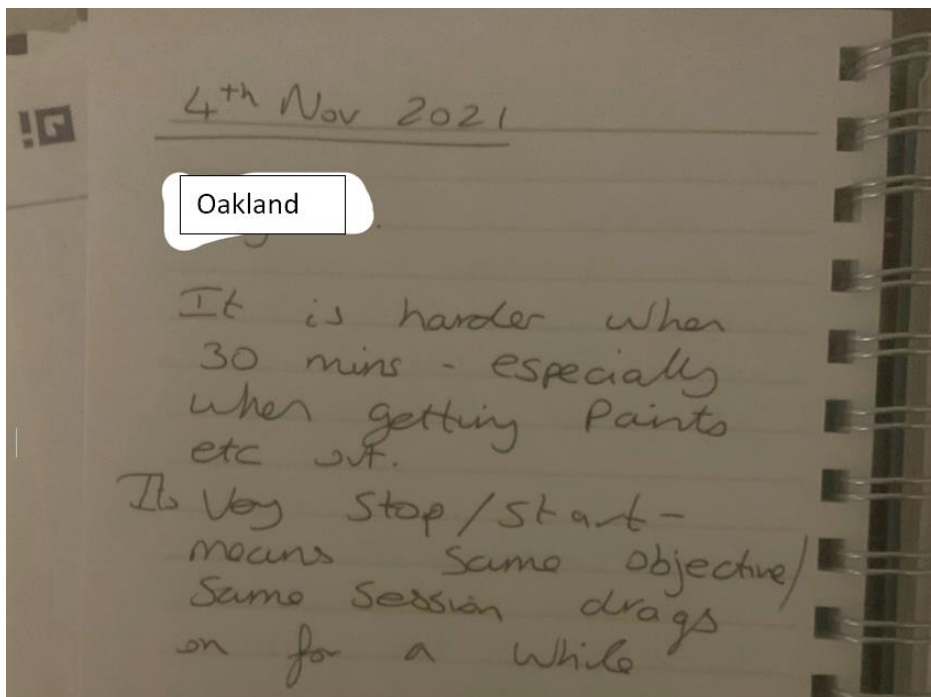 4th Nov 2021
Oakland
It is harder when
30 mins - especially
when getting Paints
etc out.
Its Very Stop/Start -
means same objective/
Same session drags
on for a while